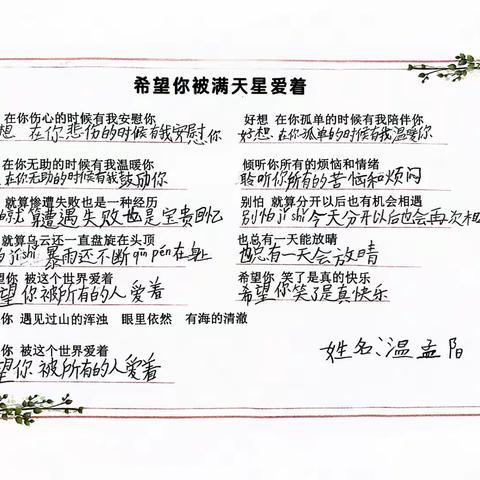 希望你被满天星爱着
在你伤心的时候有我安慰你 好想 在你孤单的时候有我陪伴你
想 在你悲伤的时候有我安慰你 好想 在你孤单的时候有我温暖你
在你无助的时候有我温暖你 倾听你所有的烦恼和情绪
在你无助的时候有我鼓励你 聆听你所有的苦恼和烦闷
就算惨遭失败也是一种经历 别怕 就算分开以后也有机会相遇
怕就算遭遇失败也是宝贵回忆 别怕jiù shì今天分开以后也会再次相
就算乌云还一直盘旋在头顶 也总有一天能放晴
jiù shì 暴雨还不断qīn pén在身上 也总有一天会放晴
你 被这个世界爱着 希望你 笑了是真的快乐
望你被所有的人爱着 希望你笑了是真快乐
你 遇见过山的浑浊 眼里依然 有海的清澈
你 被这个世界爱着
望你被所有的人爱着
姓名:温孟阳